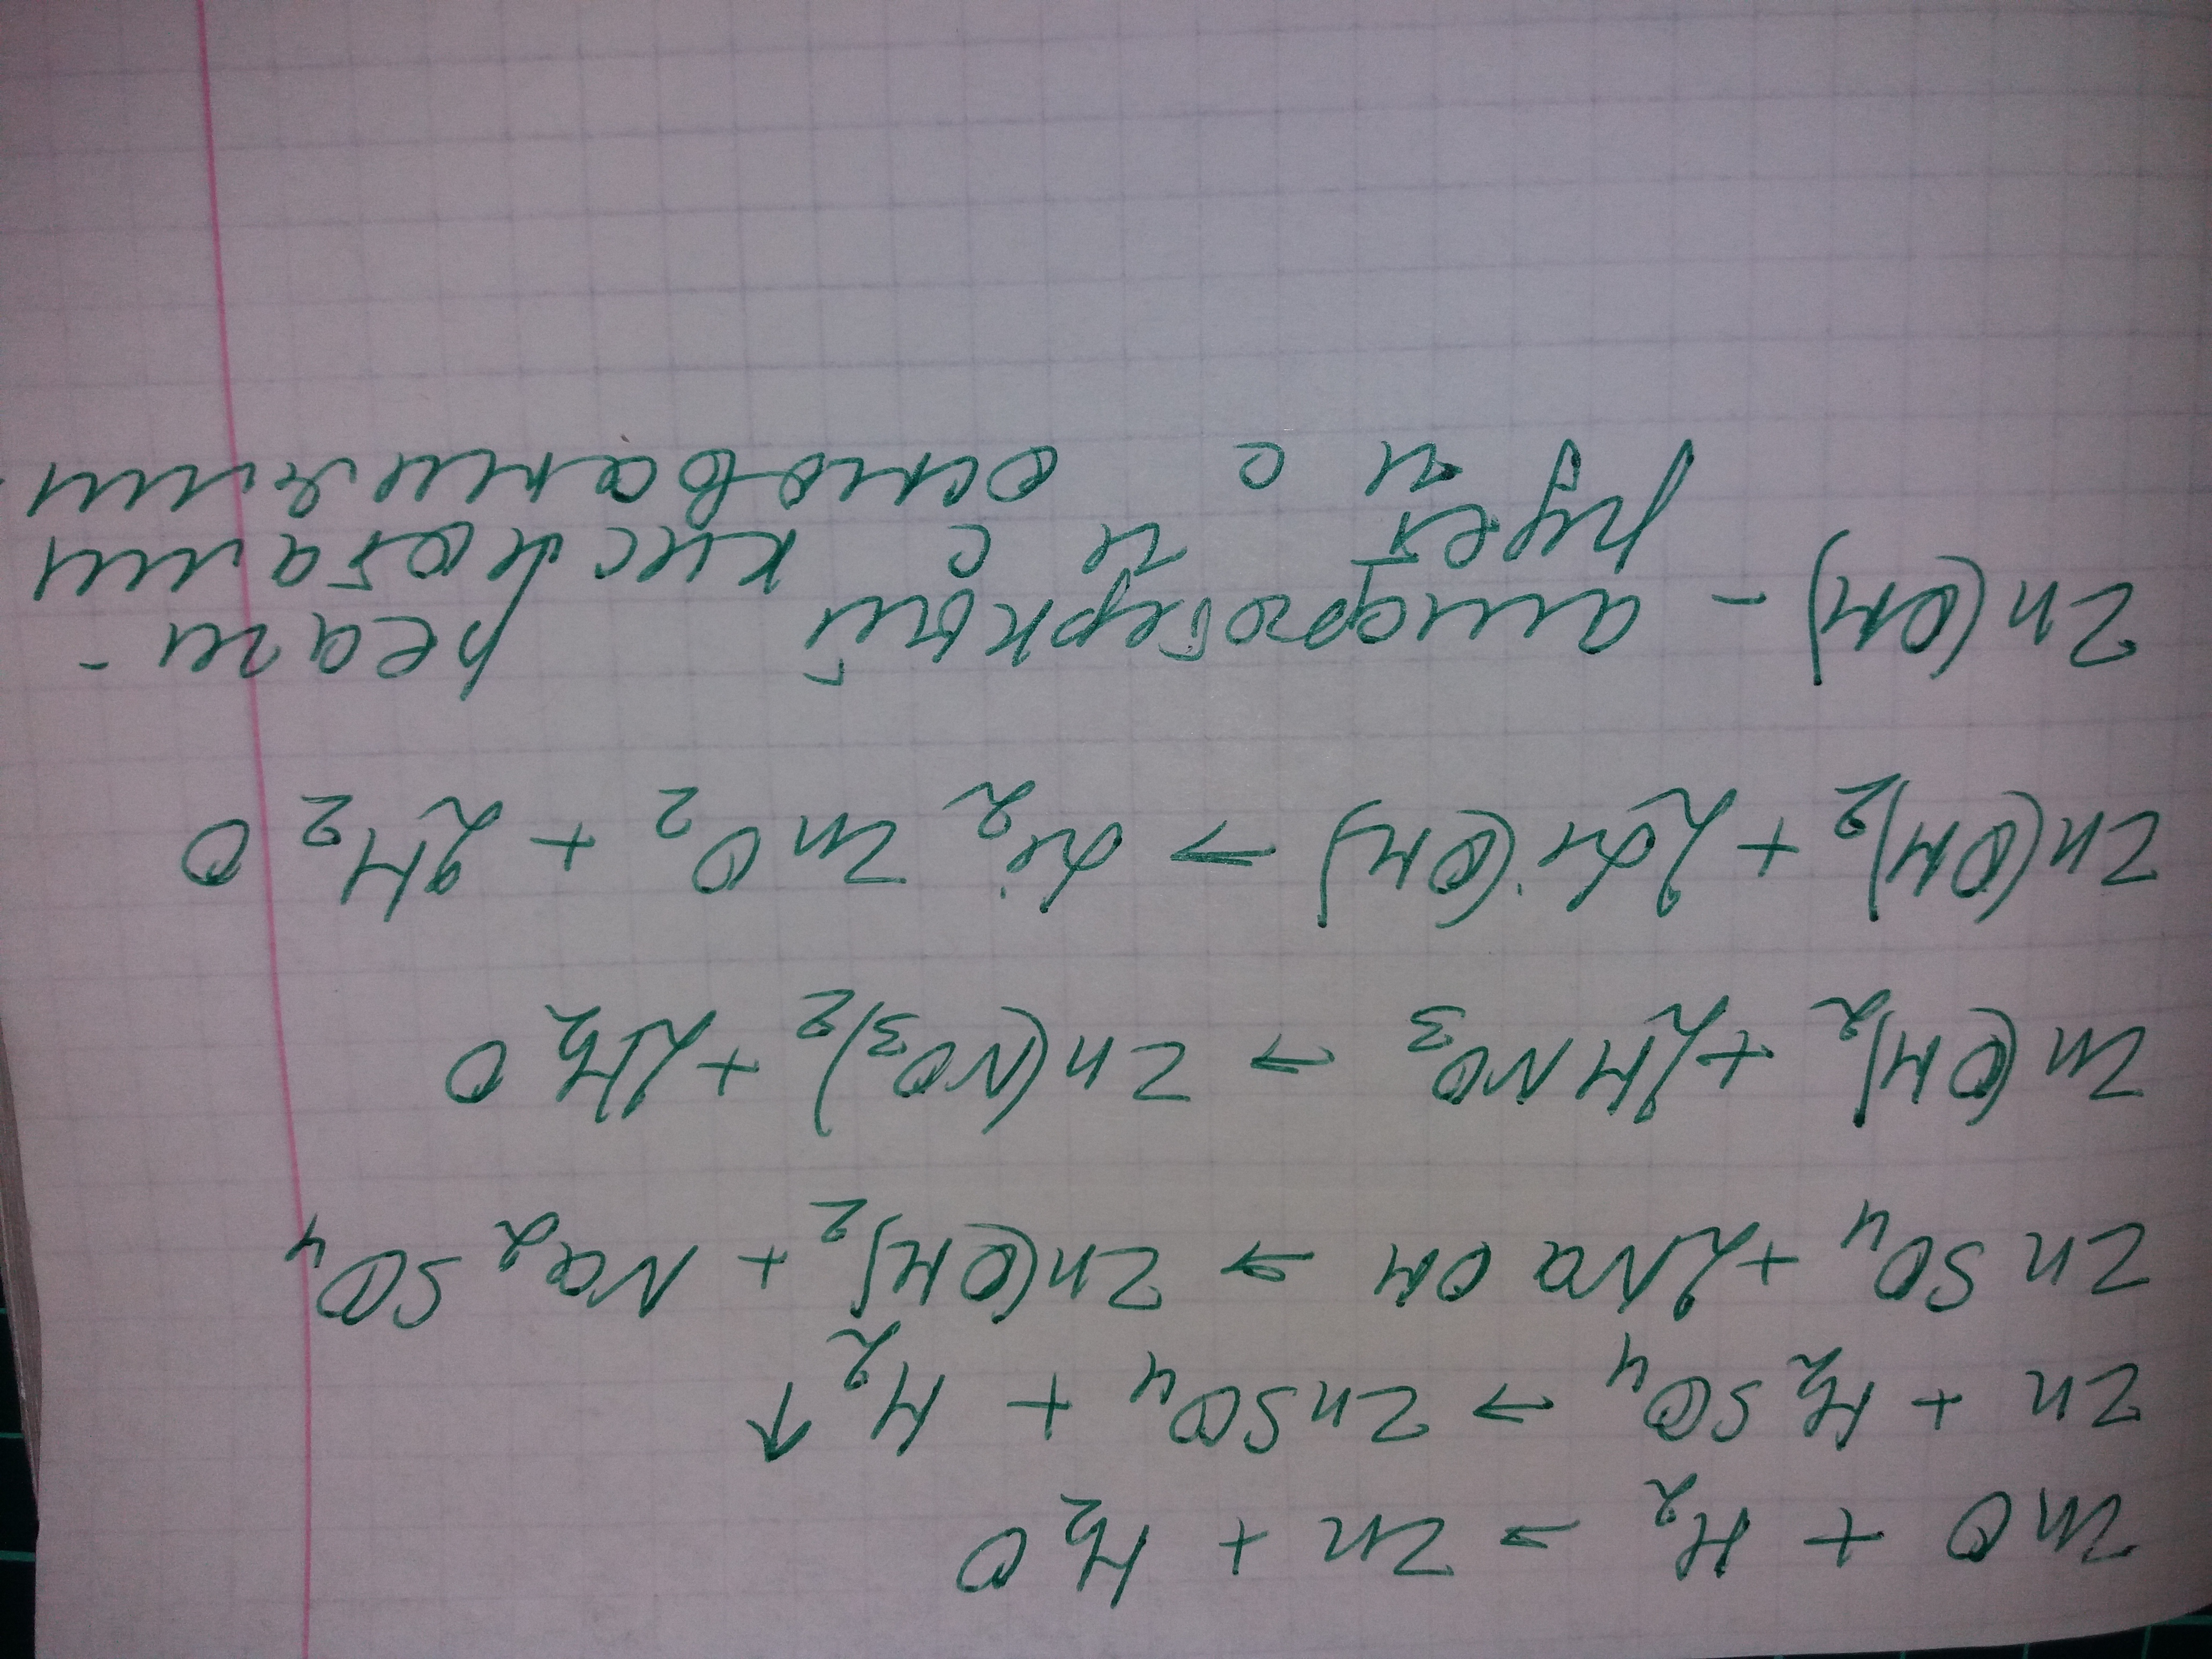 ZnO + H₂ → Zn + H₂O
Zn + H₂SO₄ → ZnSO₄ + H₂↑
ZnSO₄ + 2NaOH → Zn(OH)₂ + Na₂SO₄
Zn(OH)₂ + 2HNO₃ → Zn(NO₃)₂ + 2H₂O
Zn(OH)₂ + 2Li(OH) → Li₂ZnO₂ + 2H₂O
Zn(OH) - амфотерный реаги-
рует и с кислотами
и с основаниями.